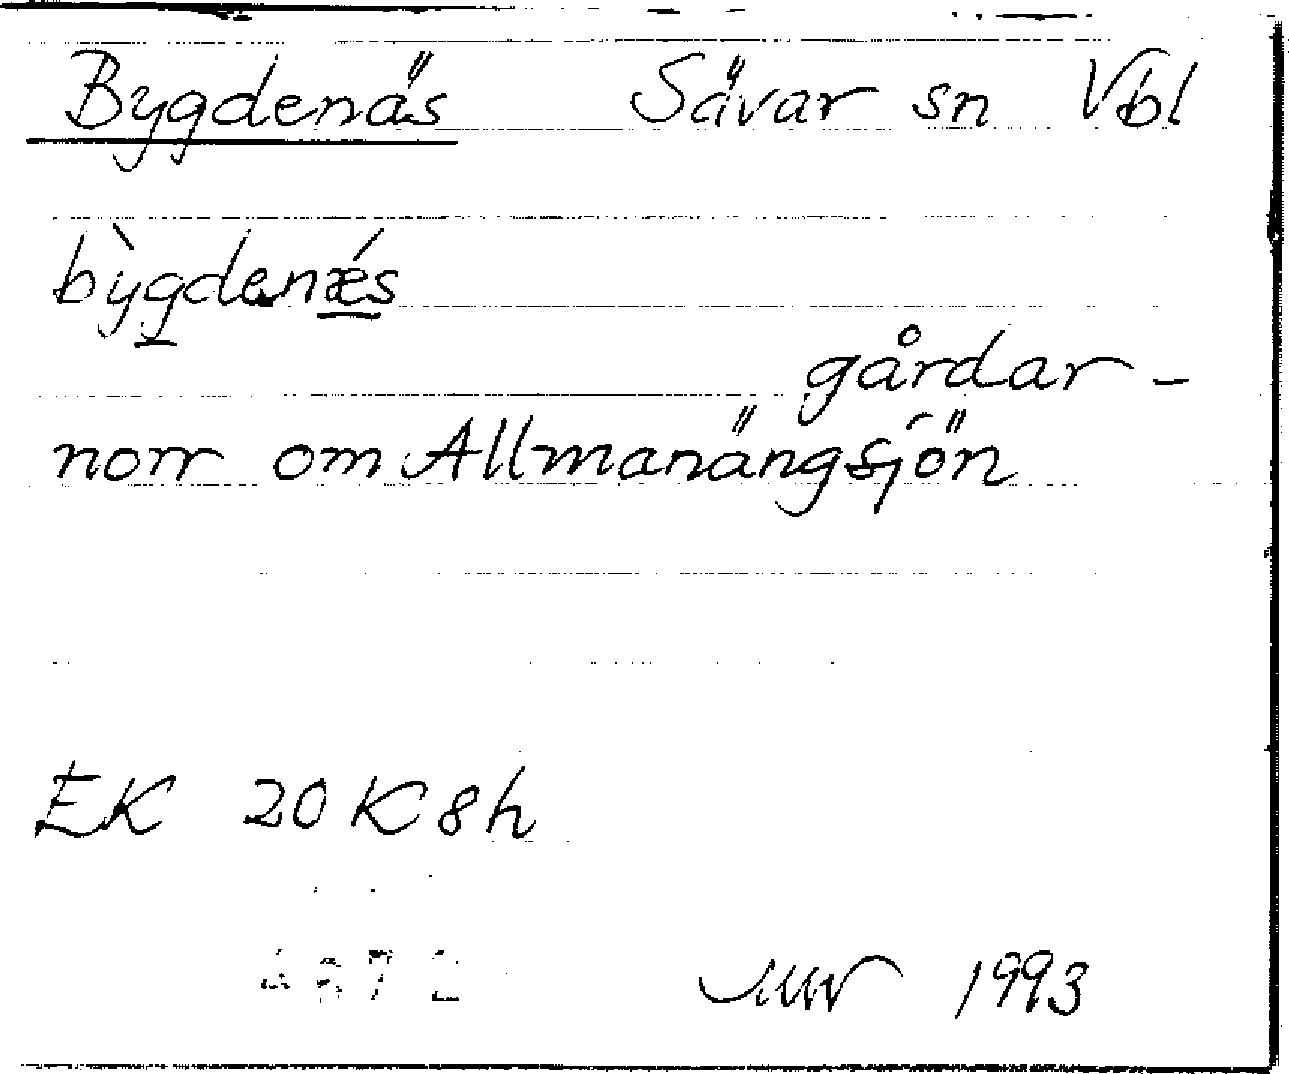 Bygdenäs Sävar sn Vbl
bỳgdenǽs
gårdar -
norr om Allmanängsjön
EK 20 K 8 h
1993